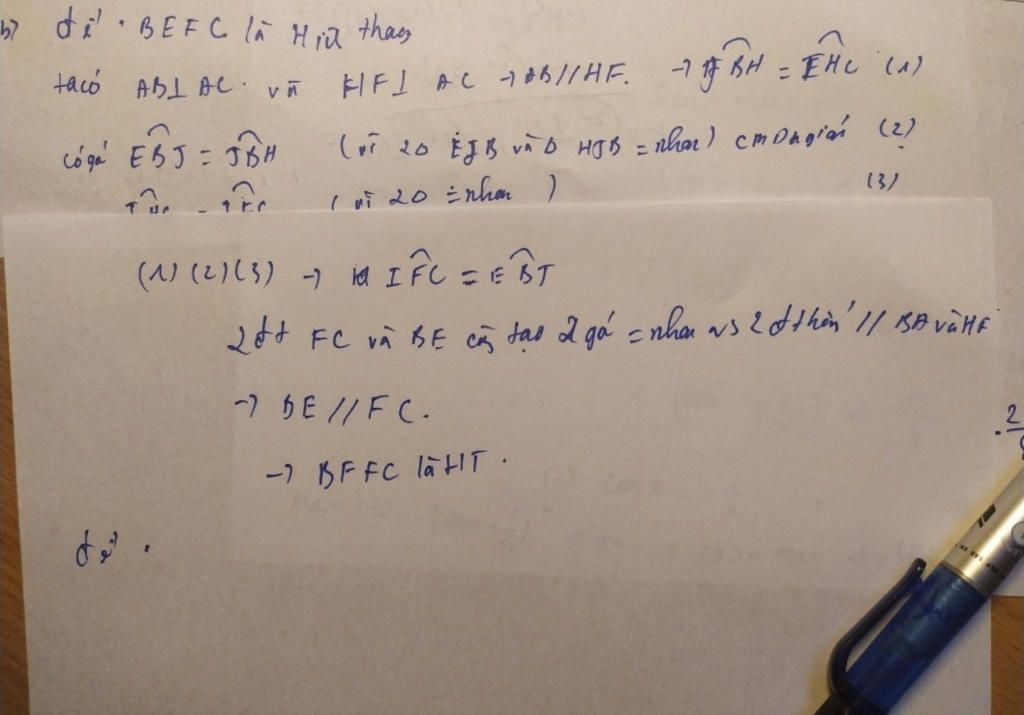 b) để · BEFC là Hình thang
ta có AB⊥ AC. và HF⊥ AC → AB//HF. → JBH = IHC (1)
có góc EBJ = JBH (vì 2Δ EJB và Δ HJB = nhau) cm Đơn giản (2)
(vì 2Δ = nhau) (3)
(1) (2) (3) → IFC = EBJ
2 đt FC và BE cùng tạo 2 góc = nhau vs 2 đt // BA và HF
→ BE // FC.
→ BEFC là HT.
để .
2